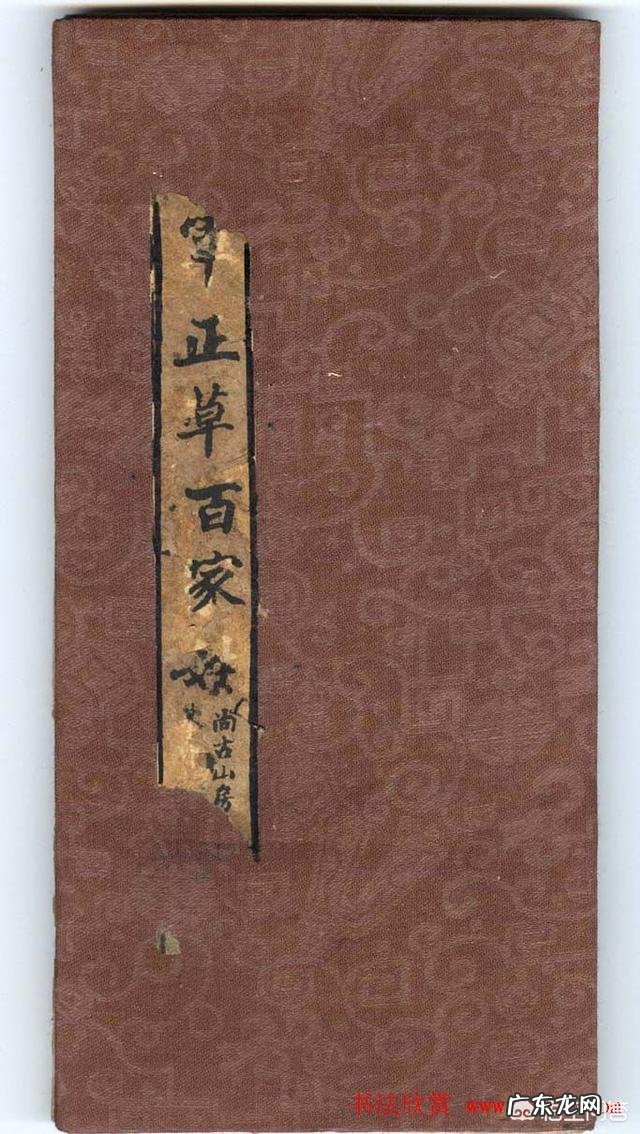 正草百家姓
尚古山房
书法欣赏 www.
广东龙网